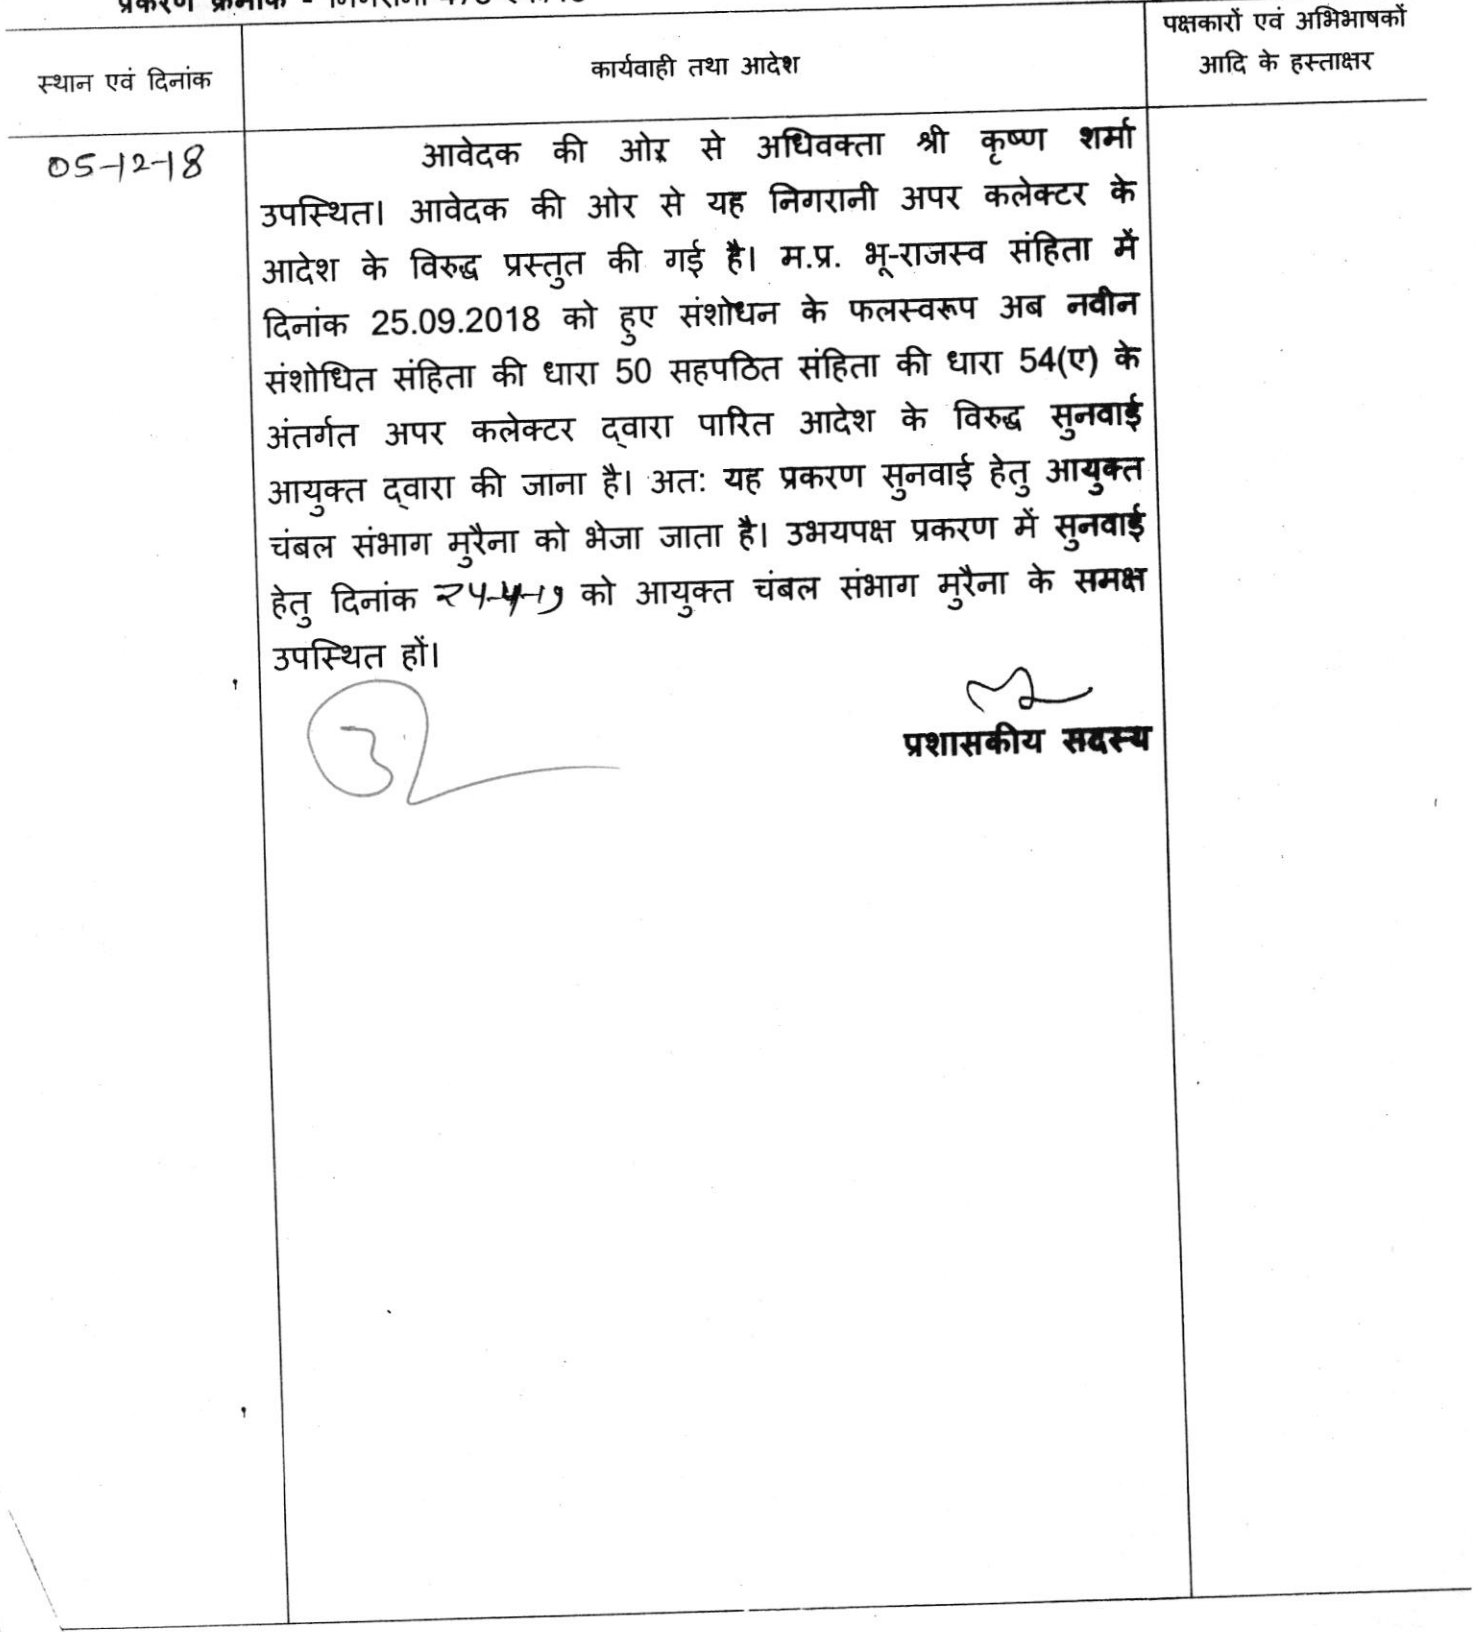 प्रकरण क्रमांक - निगरानी
पक्षकारों एवं अभिभाषकों
आदि के हस्ताक्षर
स्थान एवं दिनांक
कार्यवाही तथा आदेश
05-12-18
आवेदक की ओर से अधिवक्ता श्री कृष्ण शर्मा
उपस्थित। आवेदक की ओर से यह निगरानी अपर कलेक्टर के
आदेश के विरुद्ध प्रस्तुत की गई है। म.प्र. भू-राजस्व संहिता में
दिनांक 25.09.2018 को हुए संशोधन के फलस्वरूप अब नवीन
संशोधित संहिता की धारा 50 सहपठित संहिता की धारा 54(ए) के
अंतर्गत अपर कलेक्टर द्वारा पारित आदेश के विरुद्ध सुनवाई
आयुक्त द्वारा की जाना है। अत: यह प्रकरण सुनवाई हेतु आयुक्त
चंबल संभाग मुरैना को भेजा जाता है। उभयपक्ष प्रकरण में सुनवाई
हेतु दिनांक को आयुक्त चंबल संभाग मुरैना के समक्ष
उपस्थित हों।
प्रशासकीय सदस्य